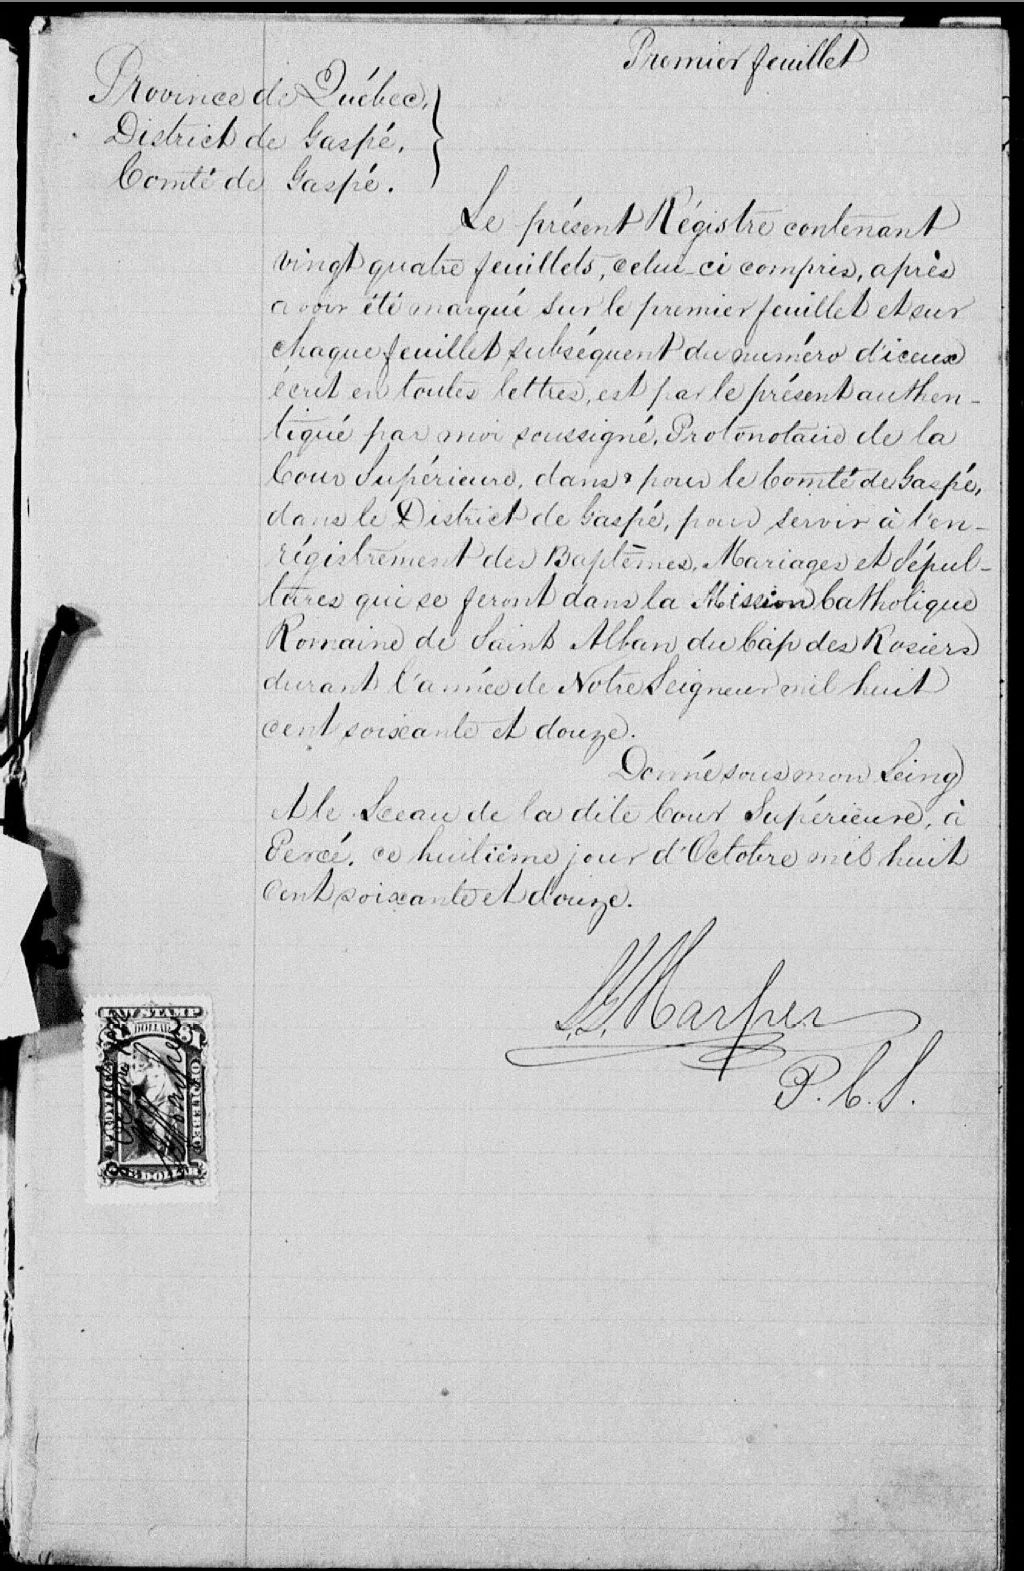 Premier feuillet
Province de Québec,
District de Gaspé,
Comté de Gaspé.
Le présent Régistre contenant
vingt quatre feuillets, celui-ci compris, après
avoir été marqué sur le premier feuillet et sur
chaque feuillet subséquent du numéro d'iceux
écrit en toutes lettres, est par le présent authen-
tiqué par moi soussigné, Protonotaire de la
Cour Supérieure, dans & pour le Comté de Gaspé,
dans le District de Gaspé, pour servir à l'en-
régistrement des Baptêmes, Mariages et Sépul-
tures qui se feront dans la Mission Catholique
Romaine de Saint Alban du Cap des Rosiers
durant l'année de Notre Seigneur mil huit
cent soixante et douze.
Donné sous mon Seing
et le Sceau de la dite Cour Supérieure, à
Percé, ce huitième jour d'Octobre mil huit
cent soixante et douze.
P.C.S.
LAW STAMP
$1 DOLLAR $1
ONE DOLLAR